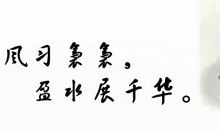 风习袅袅，
盈水展千华。